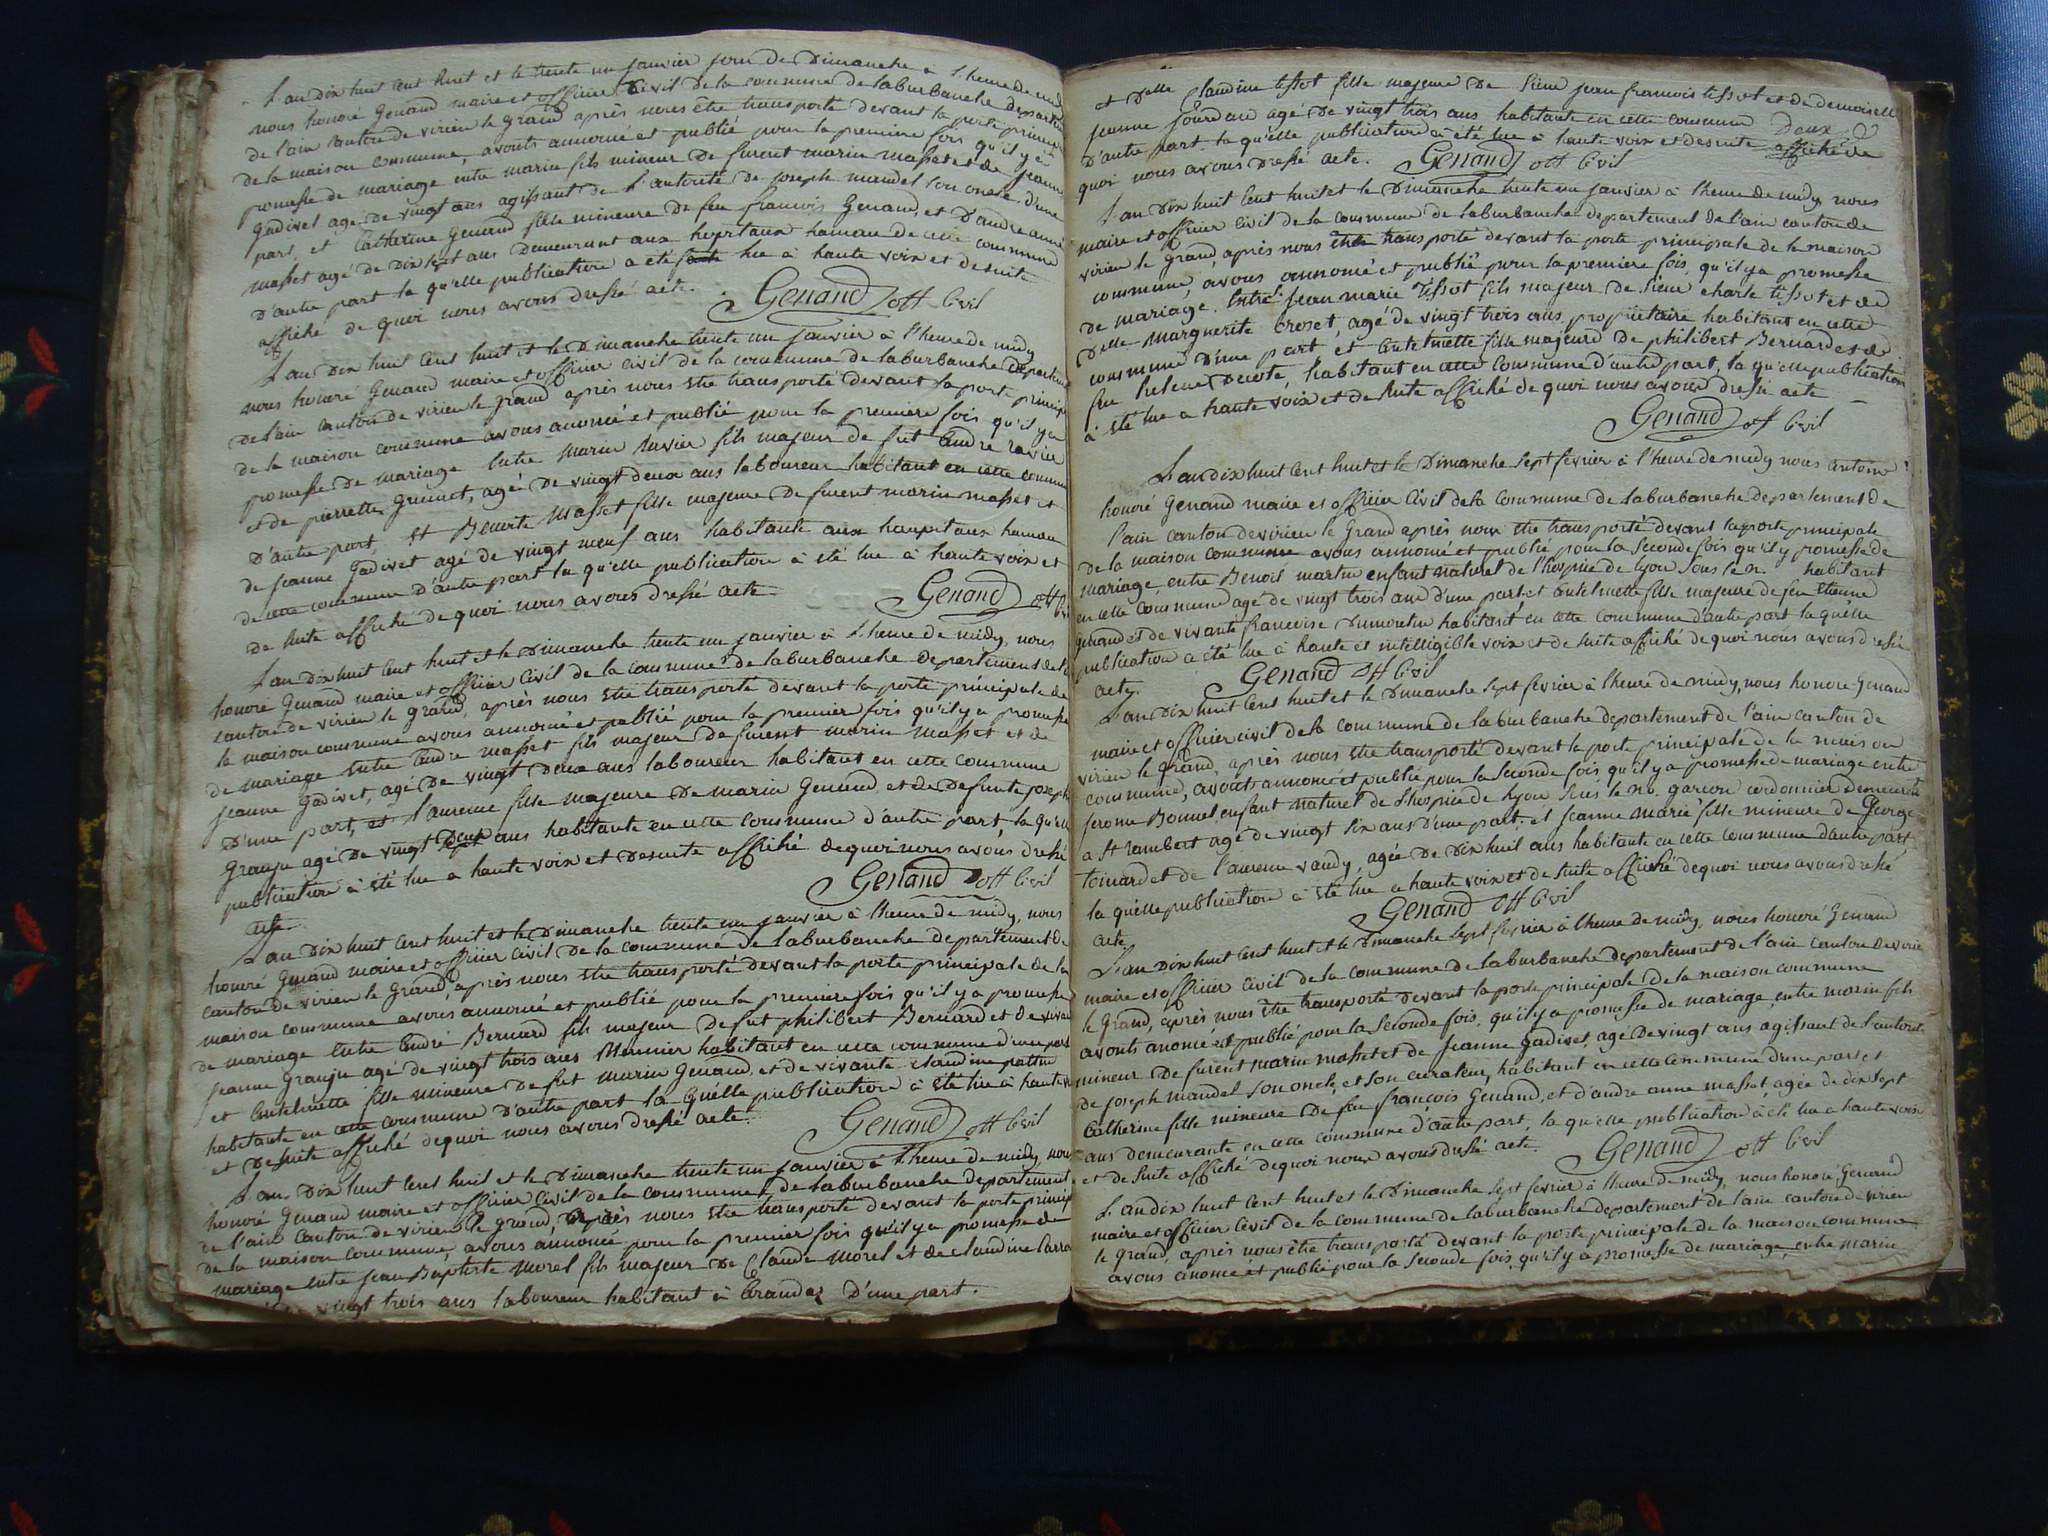 L'an dix huit cent huit et le trente un janvier jour de Dimanche à l'heure de midy
nous honoré Genand maire et officier Civil de la commune de laburbanche departem
de l'ain canton de virieu le grand après nous être transporté devant la porte princip
de la maison commune, avons annoncé et publié pour la premiere fois qu'il y a
promesse de mariage entre marin fils mineur de furent marin masset et de jeanne
gadivet agé de vingt ans agissant de l'autorité de joseph mandel son oncle d'une
part, et Catherine Genand fille mineure de feu francois Genand, et d'andre anne
masset agé de dix sept ans demeurant aux hopitaux hamau de cette commune
d'autre part la qu'elle publication a été lue à haute voix et de suite
affiché de quoi nous avons dressé acte. Genand off Civil
L'an dix huit cent huit et le Dimanche trente un janvier à l'heure de midy
nous honoré Genand maire et officier civil de la commune de laburbanche departem
de l'ain canton de virieu le grand après nous être transporté devant la porte princip
de la maison commune avons anoncé et publié pour la premiere fois qu'il y a
promesse de mariage Entre Marin Ravier fils majeur de fut André ravier
et de pierrette grinnet, agé de vingt deux ans laboureur habitant en cette commune
d'autre part, et Benoite Masset fille majeure de furent marin masset et
de jeanne gadivet agé de vingt neuf ans habitante aux haupitaux hamau
de cette commune d'autre part la qu'elle publication à été lue à haute voix et
de suite affiché de quoi nous avons dressé acte Genand off Ci
L'an dix huit cent huit et le Dimanche trente un janvier à l'heure de midy, nous
honoré Genand maire et officier civil de la commune de laburbanche departement de l'
canton de virieu le grand, après nous être transporté devant la porte principale de
la maison commune avons annoncé et publié pour la premier fois qu'il y a promesse
de mariage entre André masset fils majeur de furent marin masset et de
jeanne gadivet, agé de vingt deux ans laboureur habitant en cette commune
d'une part, et laurence fille majeure de marin Genand et de defunte joseph
Granju agé de vingt deux ans habitante en cette commune d'autre part, la qu'elle
publication à été lue a haute voix et de suite affiché de quoi nous avons dressé
acte. Genand off Civil
L'an dix huit cent huit et le Dimanche trente un janvier à l'heure de midy, nous
honoré Genand maire et officier civil de la commune de laburbanche departement de
canton de virieu le grand, après nous être transporté devant la porte principale de la
maison commune avons annoncé et publié pour la premiere fois qu'il y a promesse
de mariage Entre André Bernard fils majeur de fut philibert Bernard et de vivan
jeanne granju agé de vingt trois ans Meunier habitant en cette commune d'une part
et Antelmette fille mineure de fut marin Genand, et de vivante claudine pattin
habitante en cette commune d'autre part la Qu'elle publication à été lue à haute v
et de suite affiché de quoi nous avons dressé acte. Genand off Civil
L'an dix huit cent huit et le Dimanche trente un janvier à l'heure de midy nous
honoré Genand maire et officier civil de la commune de laburbanche departement
de l'ain Canton de virieu le grand après nous être transporté devant la porte princip
de la maison commune, avons annoncé pour la premier fois qu'il y a promesse de
mariage entre jean Baptiste Morel fils majeur de Claude Morel et de claudine
vingt trois ans laboureur habitant à Brandaz D'une part.
et Delle Claudine tissot fille majeure de Sieur jean francois tissot et de demoiselle
jeanne jourdan agé de vingt trois ans habitante en cette commune
D'autre part, la qu'elle publication à été lue à haute voix et de suite affiché de
quoi nous avons dressé acte. Genand off Civil
L'an dix huit Cent huit et le Dimanche trente un janvier à l'heure de midy nous
maire et officier civil de la commune de laburbanche departement de l'ain canton de
virieu le grand, après nous être transporté devant la porte principale de la maison
commune, avons annoncé et publié pour la premiere fois, qu'il y a promesse
de mariage. Entre jean marie Tissot fils majeur de Sieur charle tissot et de
Delle Marguerite Croset, agé de vingt trois ans, propriétaire habitant en cette
commune d'une part, et Antelmette fille majeure de philibert Bernard et de
feu helene Decote, habitant en cette Commune d'autre part, la qu'elle publication
à été lue a haute voix et de suite affiché de quoi nous avons dressé acte
Genand off Civil
L'an dix huit Cent huit et le Dimanche sept fevrier à l'heure de midy nous antome
honoré Genand maire et officier Civil de la Commune de laburbanche departement de
l'ain canton de virieu le Grand après nous être transporté devant la porte principale
de la maison commune avons annoncé et publié pour la seconde fois qu'il y promesse de
mariage, entre Benoit martin enfant naturel de l'hospice de lyon sous le n. habitant
en cette commune agé de vingt trois ans d'une part et antelmette fille majeure de feu Etienne
genand et de vivante francoise Dumoulin habitant en cette commune d'autre part la qu'elle
publication a été lue à haute et intelligible voix et de suite affiché de quoi nous avons dressé
acte. Genand off Civil
L'an dix huit Cent huit et le Dimanche sept fevrier à l'heure de midy, nous honoré Genand
maire et officier civil de la commune de laburbanche departement de l'ain canton de
virieu le grand, après nous être transporté devant la porte principale de la maison
commune, avons annoncé et publié pour la seconde fois qu'il y a promesse de mariage entre
jerome Bonnel, enfant naturel de l'hospice de lyon sous le no. garcon cordonnier demeurant
a St rambert agé de vingt six ans d'une part, et jeanne marie fille mineure de George
toinard et de laurence vandy, agée de dix huit ans habitante en cette commune d'autre part
la qu'elle publication à été lue a haute voix et de suite affiché de quoi nous avons dressé
acte Genand off Civil
L'an dix huit cent huit et le Dimanche sept fevrier à l'heure de midy, nous honoré Genand
maire et officier Civil de la commune de laburbanche departement de l'ain canton de virieu
le Grand, après nous être transporté devant la porte principale de la maison commune
avons anoncé et publié pour la seconde fois, qu'il y a promesse de mariage entre marin fils
mineur de furent marin masset et de jeanne gadivet, agé de vingt ans agissant de l'autorité
de joseph mandel son oncle, et son curateur, habitant en cette commune d'une part et
Catherine fille mineure de feu françois Genand, et d'andre anne masset, agée de dix sept
ans demeurante en cette commune d'autre part, la qu'elle publication à été lue a haute voix
et de suite affiché de quoi nous avons dressé acte. Genand off Civil
L'an dix huit Cent huit et le Dimanche sept fevrier à l'heure de midy, nous honoré Genand
maire et officier Civil de la commune de laburbanche departement de l'ain canton de virieu
le grand, après nous être transporté devant la porte principale de la maison commune
avons anoncé et publié pour la seconde fois, qu'il y a promesse de mariage, entre marin